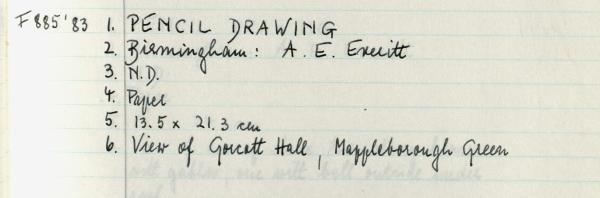 F885'83 1. PENCIL DRAWING
2. Birmingham: A. E. Everitt
3. N.D.
4. Paper
5. 13.5 x 21.3 cm
6. View of Gorcott Hall, Mappleborough Green